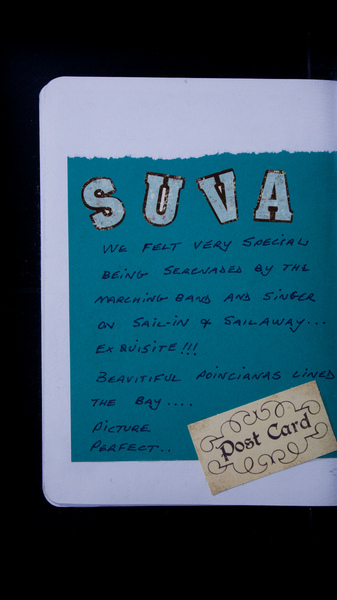 SUVA
WE FELT VERY SPECIAL
BEING SERENADED BY THE
MARCHING BAND AND SINGER
ON SAIL-IN & SAILAWAY...
EXQUISITE!!!
BEAUTIFUL POINCIANAS LINED
THE BAY....
PICTURE
PERFECT..
Post Card